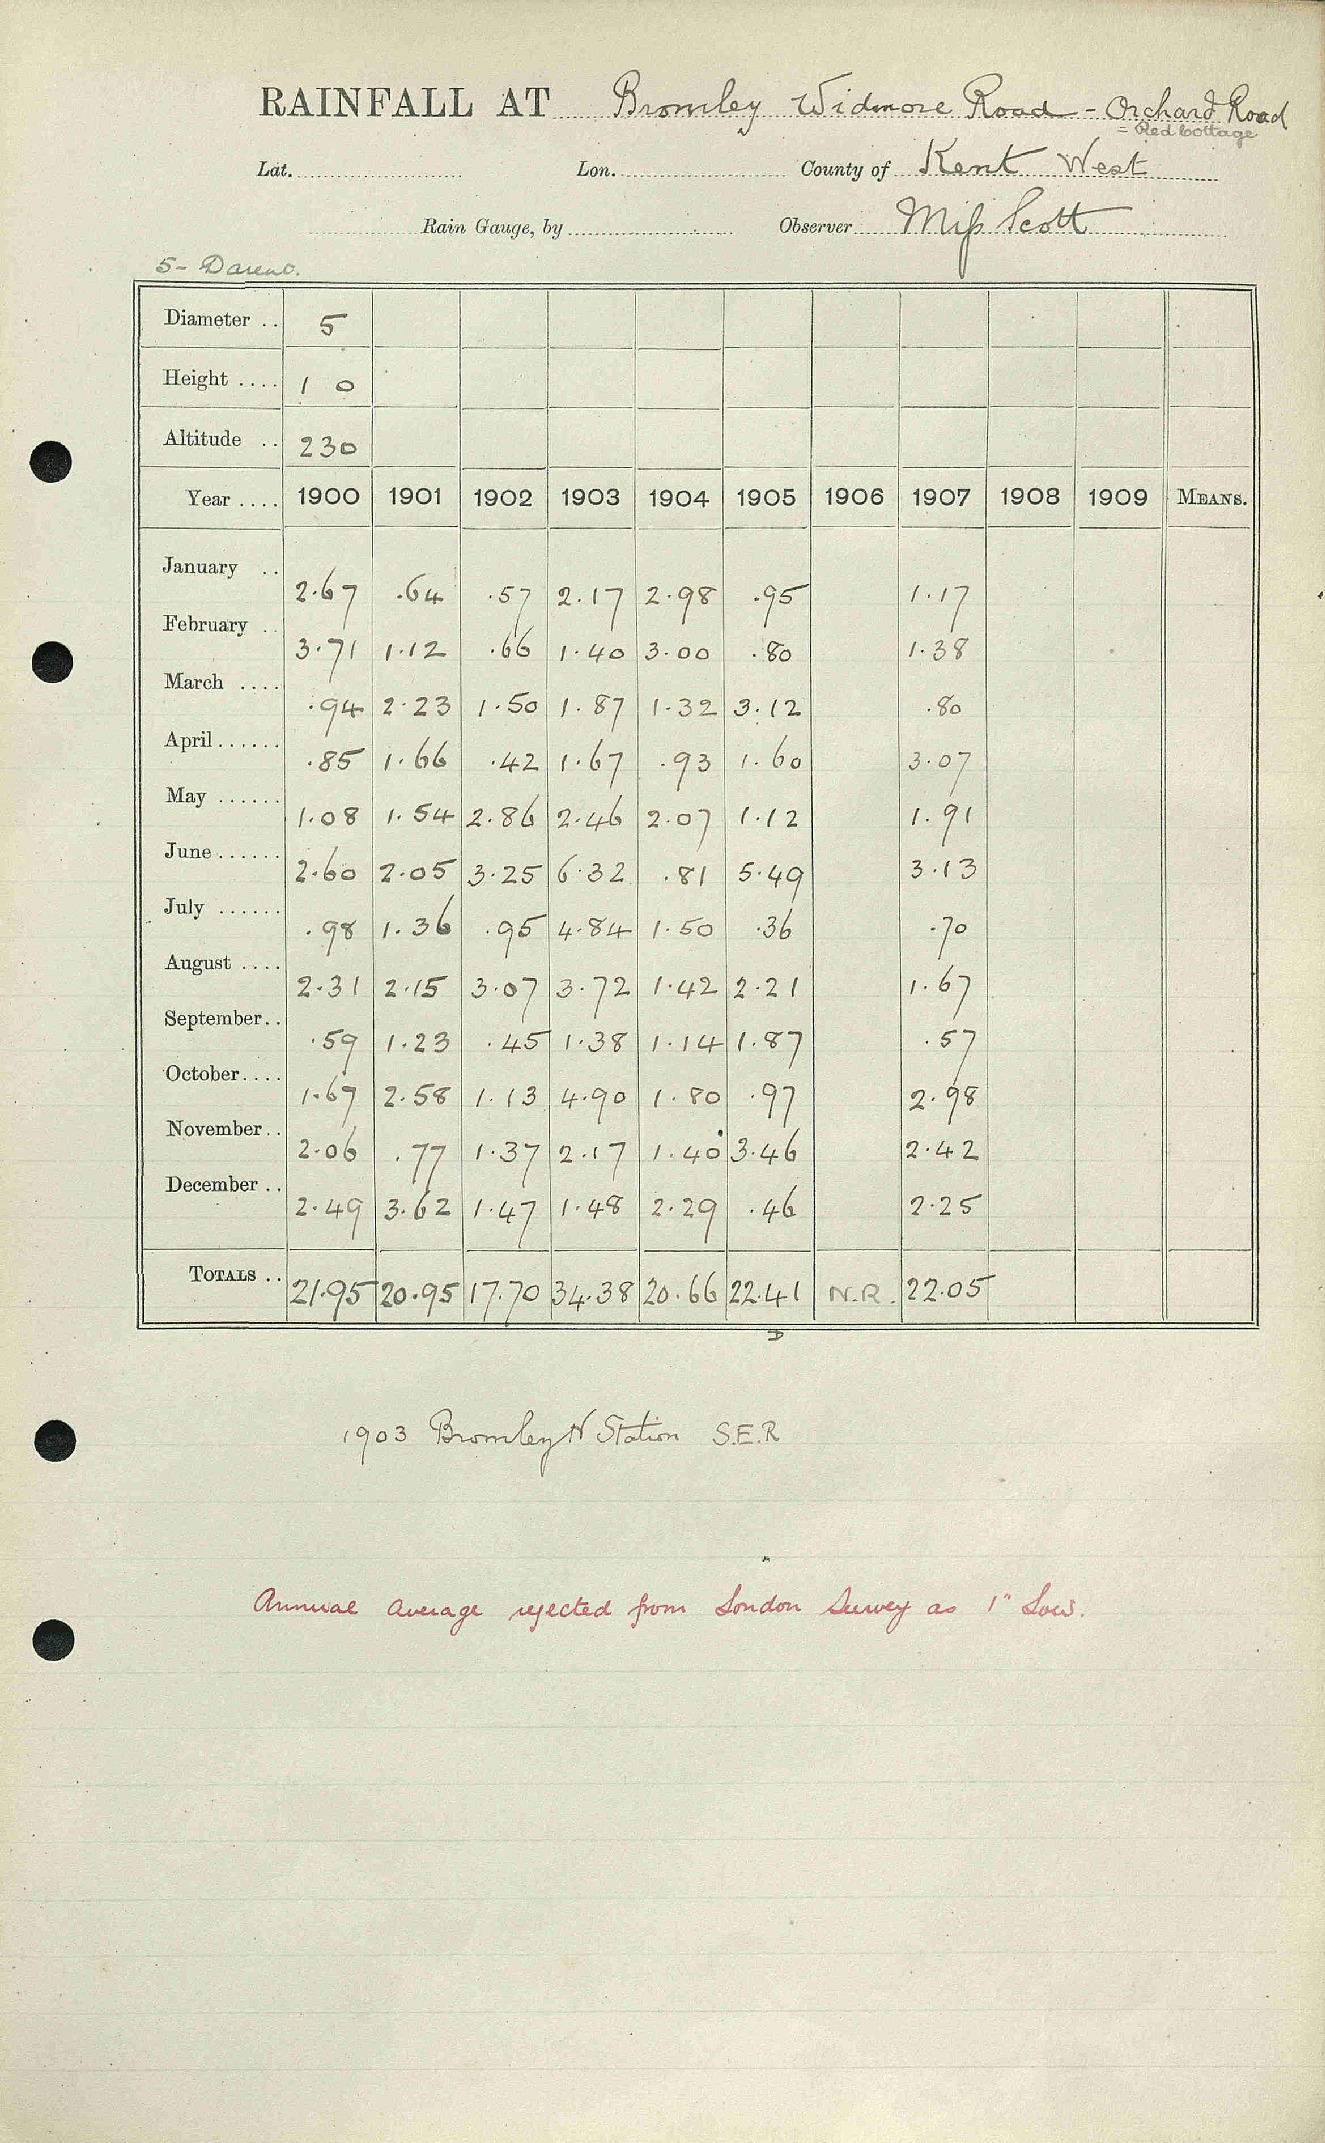 RAINFALL AT Bromley Widmore Road - Orchard Road
= Red Cottage
Lat. Lon. County of Kent West
Rain Gauge, by Observer Miss Scott
5 -
Diameter .. 5
Height .... 1 0
Altitude .. 230
Year .... 1900 1901 1902 1903 1904 1905 1906 1907 1908 1909 MEANS.
January .. 2.67 .64 .57 2.17 2.98 .95 1.17
February .. 3.71 1.12 .66 1.40 3.00 .80 1.38
March .... .94 2.23 1.50 1.87 1.32 3.12 .80
April ...... .85 1.66 .42 1.67 .93 1.60 3.07
May ...... 1.08 1.54 2.86 2.46 2.07 1.12 1.91
June ...... 2.60 2.05 3.25 6.32 .81 5.49 3.13
July ...... .98 1.36 .95 4.84 1.50 .36 .70
August .... 2.31 2.15 3.07 3.72 1.42 2.21 1.67
September.. .59 1.23 .45 1.38 1.14 1.87 .57
October.... 1.67 2.58 1.13 4.90 1.80 .97 2.98
November.. 2.06 .77 1.37 2.17 1.40 3.46 2.42
December .. 2.49 3.62 1.47 1.48 2.29 .46 2.25
TOTALS .. 21.95 20.95 17.70 34.38 20.66 22.41 N.R. 22.05
1903 Bromley N Station S.E.R
Annual average rejected from London Survey as 1" Low.